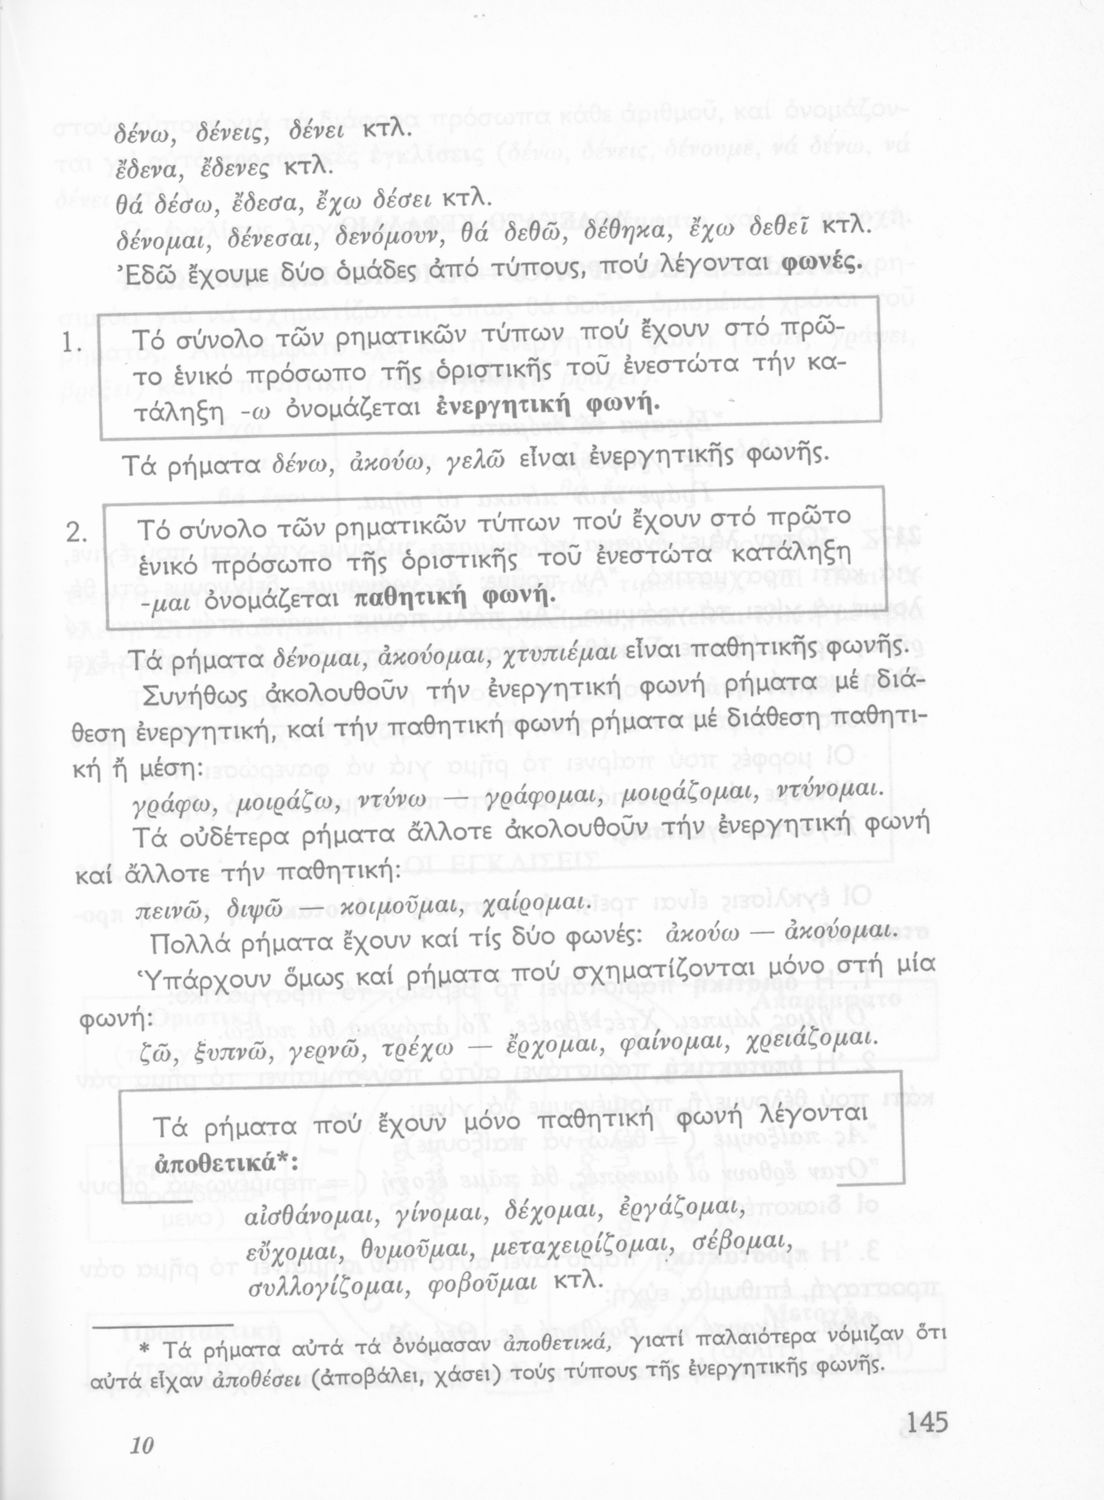 δένω, δένεις, δένει κτλ.
ἔδενα, ἔδενες κτλ.
θά δέσω, ἔδεσα, ἔχω δέσει κτλ.
δένομαι, δένεσαι, δενόμουν, θά δεθῶ, δέθηκα, ἔχω δεθεῖ κτλ.
Ἐδῶ ἔχουμε δύο ὁμάδες ἀπό τύπους, πού λέγονται φωνές.
1. Τό σύνολο τῶν ρηματικῶν τύπων πού ἔχουν στό πρῶ-
το ἑνικό πρόσωπο τῆς ὁριστικῆς τοῦ ἐνεστώτα τήν κα-
τάληξη -ω ὀνομάζεται ἐνεργητική φωνή.
Τά ρήματα δένω, ἀκούω, γελῶ εἶναι ἐνεργητικῆς φωνῆς.
2. Τό σύνολο τῶν ρηματικῶν τύπων πού ἔχουν στό πρῶτο
ἑνικό πρόσωπο τῆς ὁριστικῆς τοῦ ἐνεστώτα κατάληξη
-μαι ὀνομάζεται παθητική φωνή.
Τά ρήματα δένομαι, ἀκούομαι, χτυπιέμαι εἶναι παθητικῆς φωνῆς.
Συνήθως ἀκολουθοῦν τήν ἐνεργητική φωνή ρήματα μέ διά-
θεση ἐνεργητική, καί τήν παθητική φωνή ρήματα μέ διάθεση παθητι-
κή ἤ μέση:
γράφω, μοιράζω, ντύνω — γράφομαι, μοιράζομαι, ντύνομαι.
Τά οὐδέτερα ρήματα ἄλλοτε ἀκολουθοῦν τήν ἐνεργητική φωνή
καί ἄλλοτε τήν παθητική:
πεινῶ, διψῶ — κοιμοῦμαι, χαίρομαι.
Πολλά ρήματα ἔχουν καί τίς δύο φωνές: ἀκούω — ἀκούομαι.
Ὑπάρχουν ὅμως καί ρήματα πού σχηματίζονται μόνο στή μία
φωνή:
ζῶ, ξυπνῶ, γερνῶ, τρέχω — ἔρχομαι, φαίνομαι, χρειάζομαι.
Τά ρήματα πού ἔχουν μόνο παθητική φωνή λέγονται
ἀποθετικά*:
αἰσθάνομαι, γίνομαι, δέχομαι, ἐργάζομαι,
εὔχομαι, θυμοῦμαι, μεταχειρίζομαι, σέβομαι,
συλλογίζομαι, φοβοῦμαι κτλ.
* Τά ρήματα αὐτά τά ὀνόμασαν ἀποθετικά, γιατί παλαιότερα νόμιζαν ὅτι
αὐτά εἶχαν ἀποθέσει (ἀποβάλει, χάσει) τούς τύπους τῆς ἐνεργητικῆς φωνῆς.
145
10